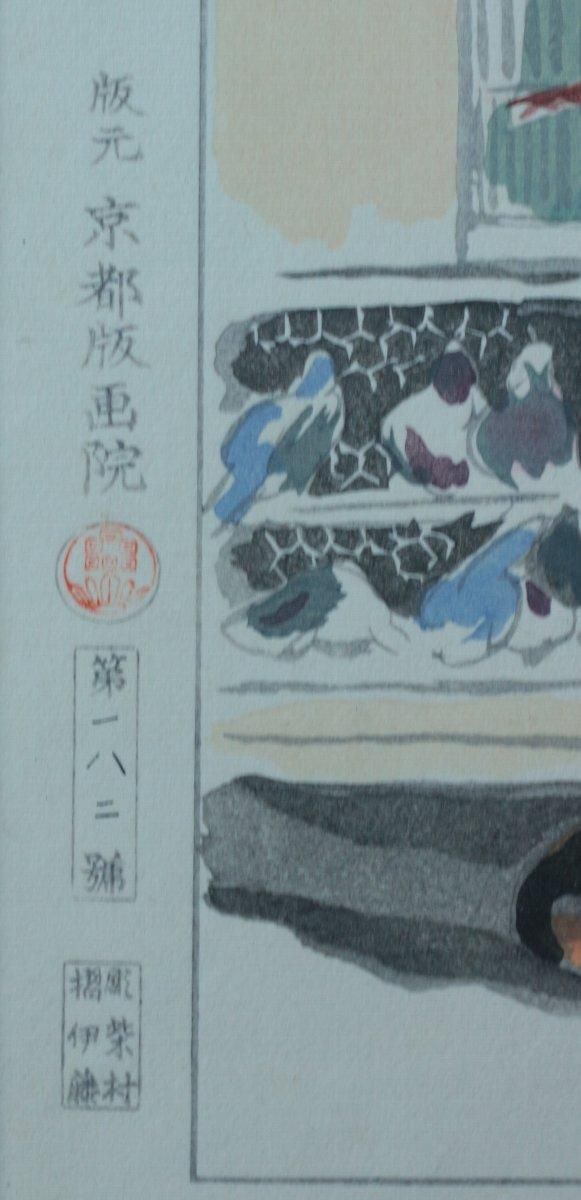 版元 京都版画院
第一八二號
彫 柴村
摺 伊藤